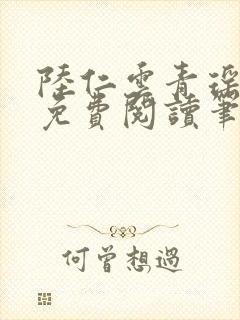 陸仁雲青瑶
免費閱讀筆
何曾想過